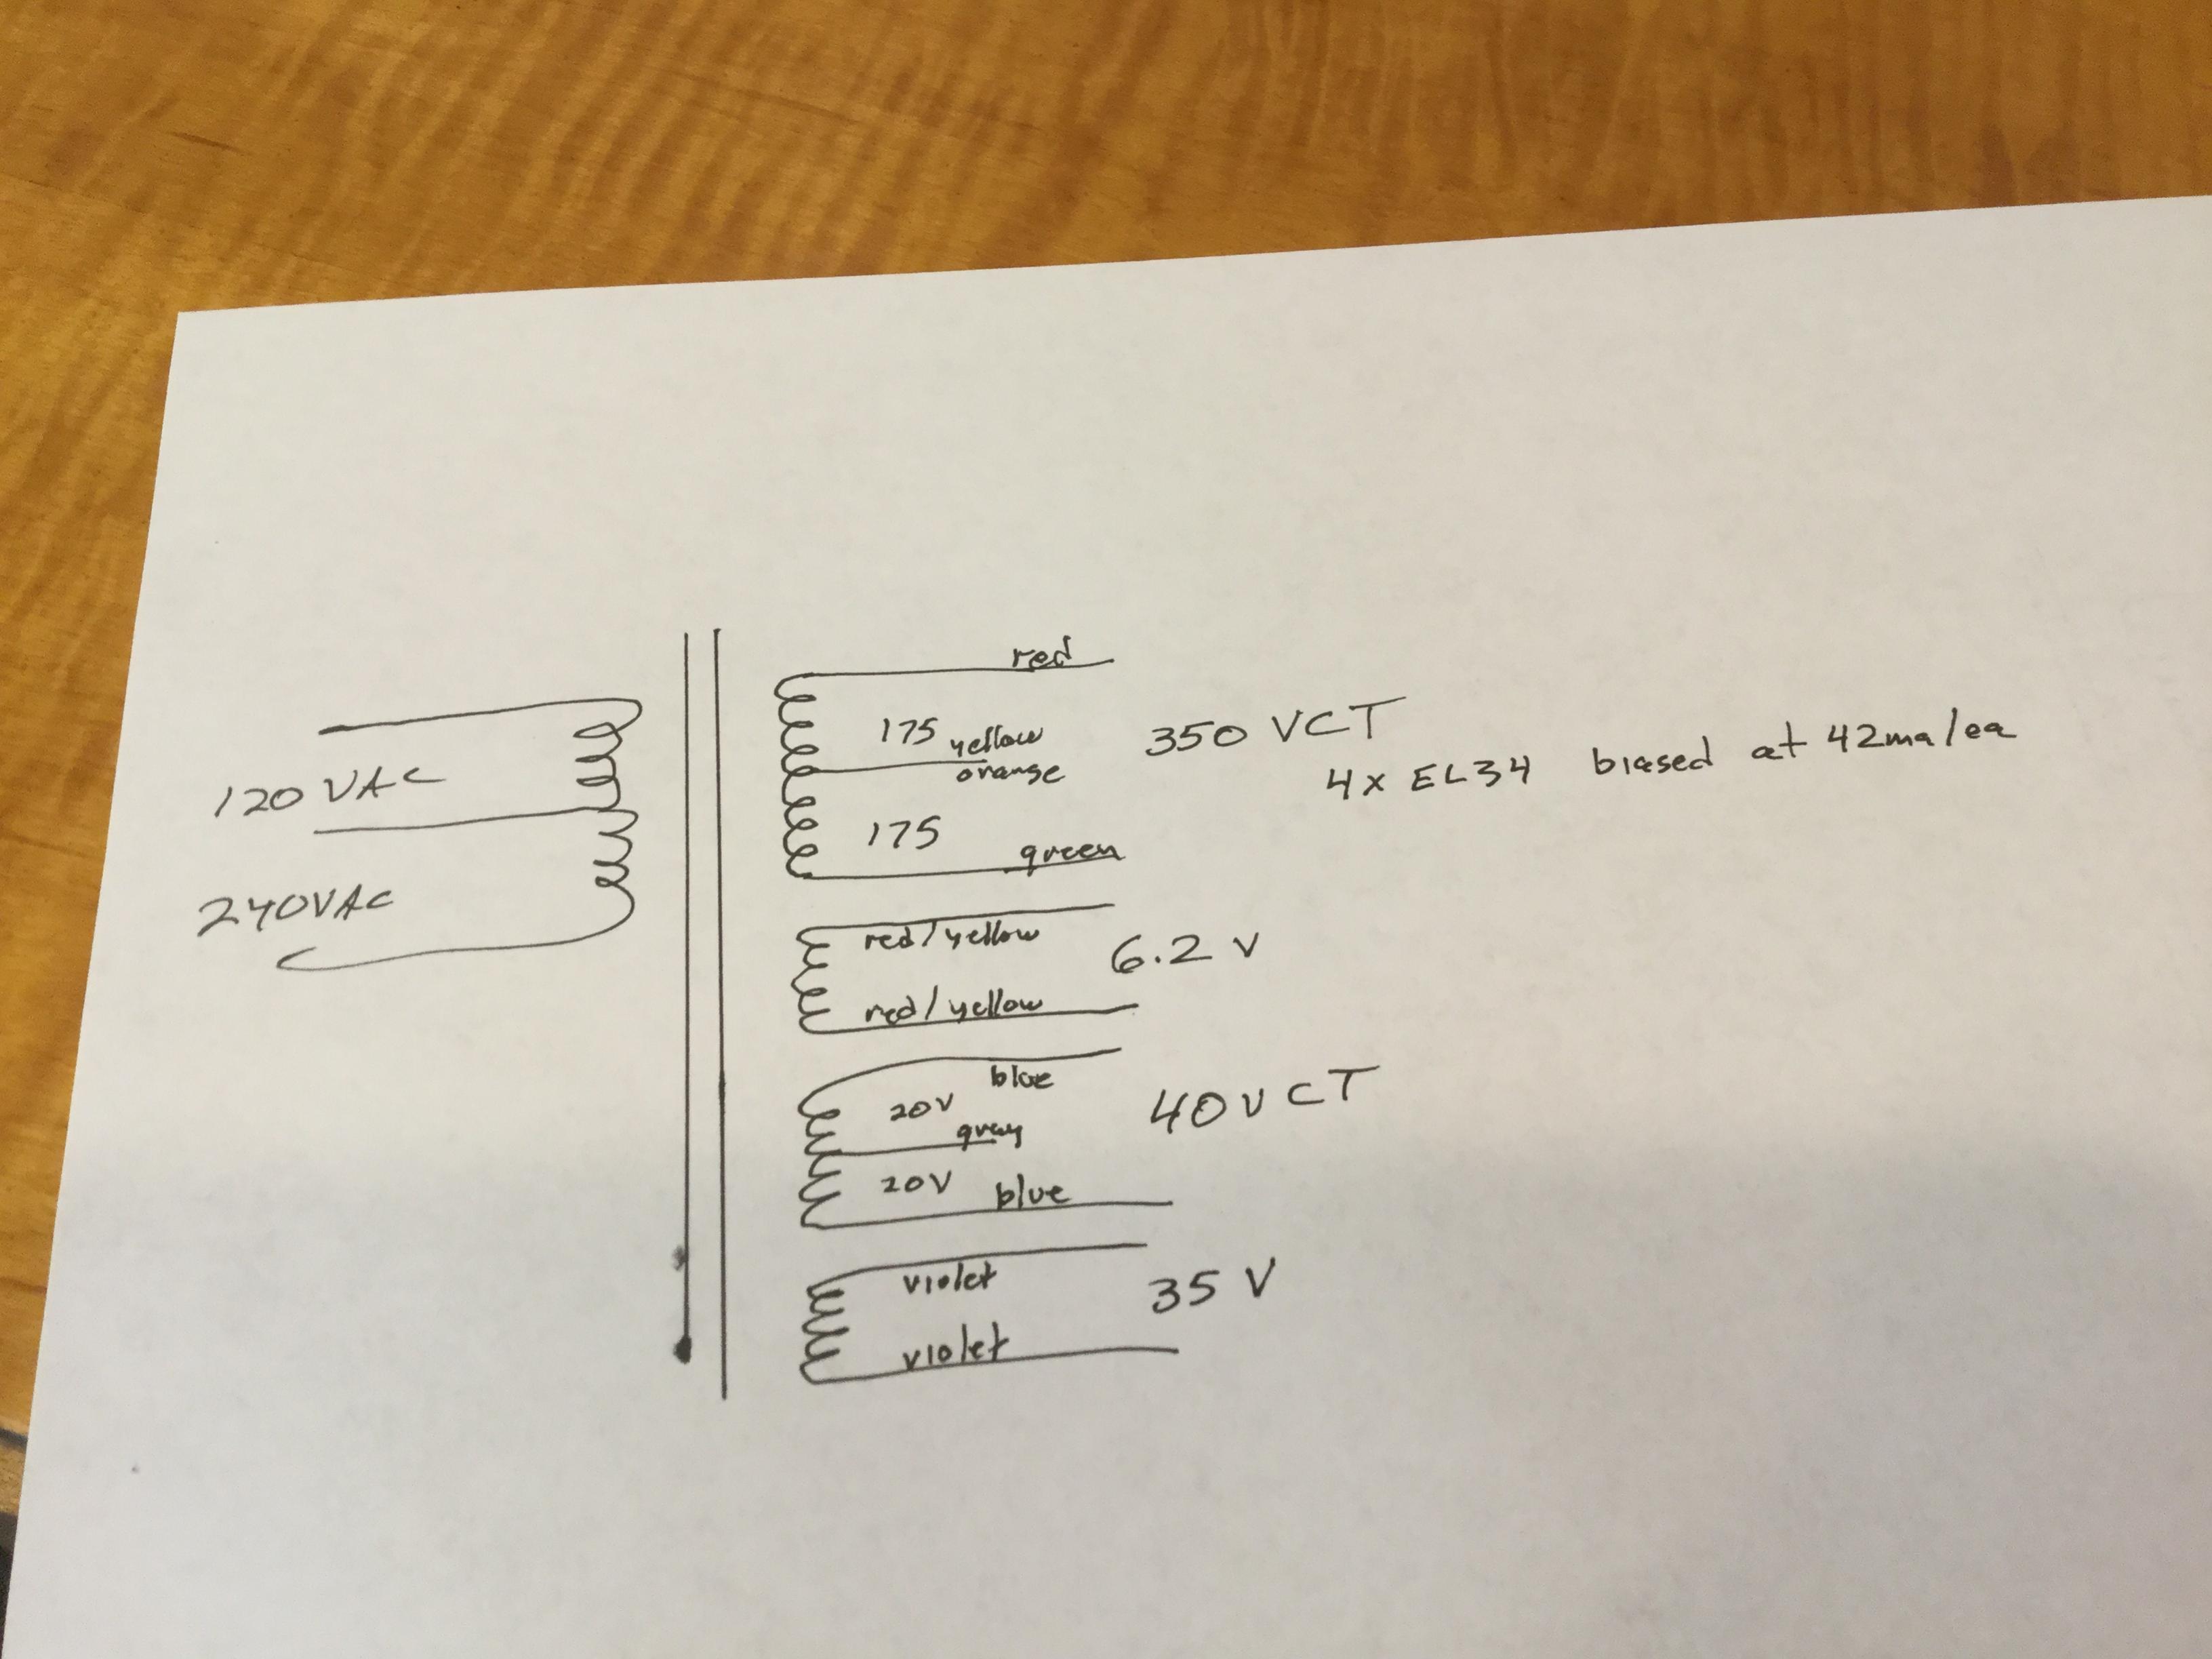 red
175 yellow
orange
350 VCT
4x EL34 biased at 42ma/ea
120 VAC
175
green
240VAC
red/yellow
6.2 V
red/yellow
blue
20V
gray
40V CT
20V
blue
violet
35 V
violet